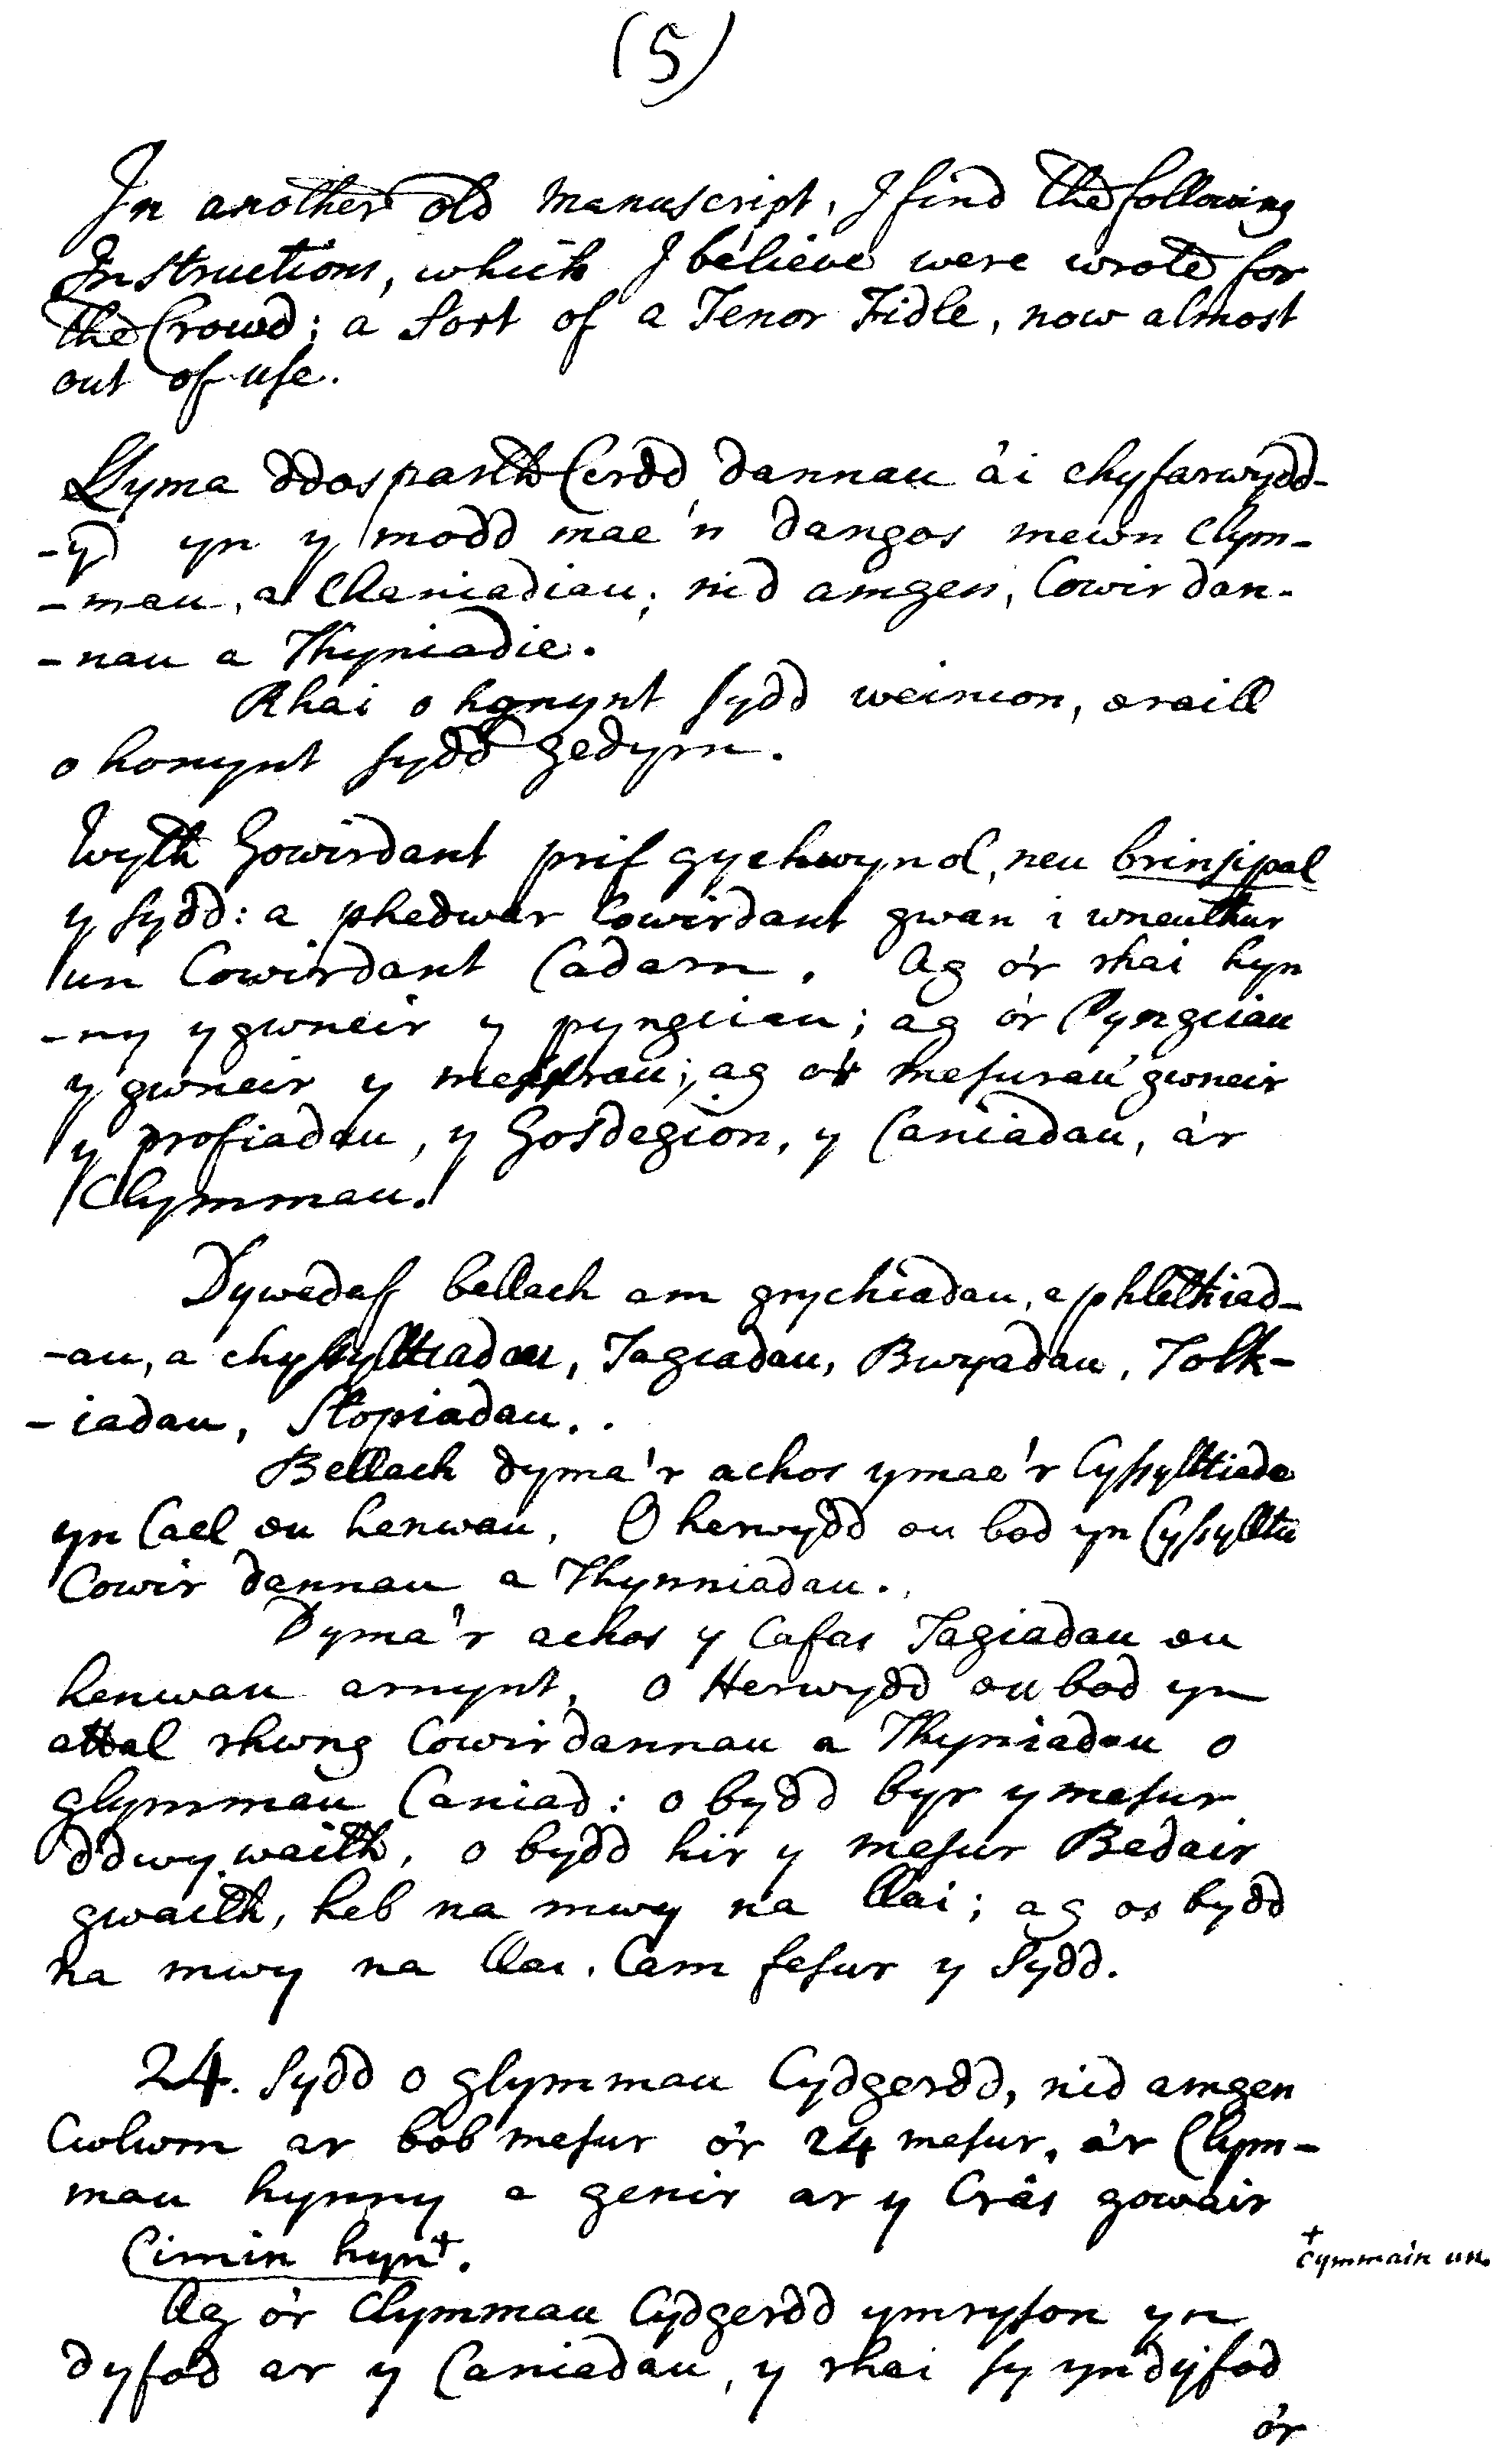 (5)
In another old Manuscript, I find the following
Instructions, which I believe were wrote for
the Crowd; a Sort of a Tenor Fidle, now almost
out of use.
Llyma ddosparth Cerdd dannau a'i chyfarwydd-
-yd yn y modd mae'n dangos mewn Clym-
-mau, a Chaniadiau; nid amgen, Cowir dan-
-nau a Thyniadie.
Rhai o honynt sydd weinion, eraill
o honynt sydd gedyrn.
Wyth Gowirdant prif gychwynol, neu brinsipal
y sydd: a phedwar Cowirdant gwan i wneuthur
un Cowirdant Cadarn. Ag o'r rhai hyn
-ny y gwneir y pyngciau; ag o'r Pyngciau
y gwneir y mesurau; ag o'r mesurau gwneir
y profiadau, y Gosdegion, y Caniadau, a'r
Clymmau.
Dywedaf bellach am grychiadau, a phlethiad-
-au, a chysylltiadau, Tagiadau, Bwyadau, Tolk-
-iadau, Stopiadau..
Bellach dyma'r achos ymae'r Cyssylltiade
yn Cael eu henwau, O herwydd eu bod yn Cysylltu
Cowir dannau a Thynniadau.
Dyma'r achos y Cafas Tagiadau eu
henwau arnynt, o Herwydd eu bod yn
attal rhwng Cowirdannau a Thyniadau o
glymmau Caniad: o bydd byr y mesur
ddwywaith, o bydd hir y mesur Bedair
gwaith, heb na mwy na llai; ag os bydd
na mwy na llai, Cam fesur y Sydd.
24. Sydd o glymmau Cydgerdd, nid amgen
Cwlwm ar bob mesur o'r 24 mesur, a'r Clym-
mau hynny a genir ar y Crâs gowair
Cimin hyn+.
+ Cymmain un.
Ag o'r Clymmau Cydgerdd ymryson yn
dyfod ar y Caniadau, y rhai sy yn dyfod
o'r